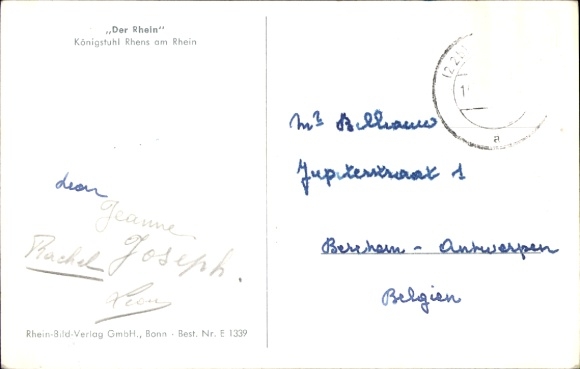 „Der Rhein"
Königstuhl Rhens am Rhein
Leon
Jeanne
Rachel Joseph.
Leon
Rhein-Bild-Verlag GmbH., Bonn - Best. Nr. E 1339
(22
a
Mr Billiauw
Jupiterstraat 1
Berchem - Antwerpen
Belgien